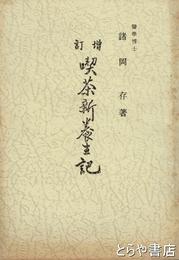 醫學博士
諸岡存著
増訂
喫茶新養生記
とらや書店